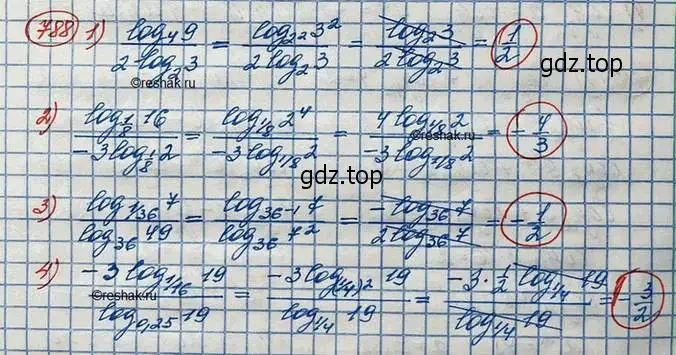 788 1) log₄9 / 2 log₂3 = log₂²3² / 2 log₂3 = log₂3 / 2 log₂3 = 1/2
gdz.top
©reshak.ru
2) log₁/₈16 / -3 log₁/₈2 = log₁/₈2⁴ / -3 log₁/₈2 = 4 log₁/₈2 / -3 log₁/₈2 = -4/3
©reshak.ru
gdz.top
3) log₁/₃₆7 / log₃₆49 = log₃₆₋₁7 / log₃₆7² = -log₃₆7 / 2 log₃₆7 = -1/2
4) -3 log₁/₁₆19 / log₀,₂₅19 = -3 log₍₁/₄₎²19 / log₁/₄19 = -3·1/2 log₁/₄19 / log₁/₄19 = -3/2
©reshak.ru
gdz.top